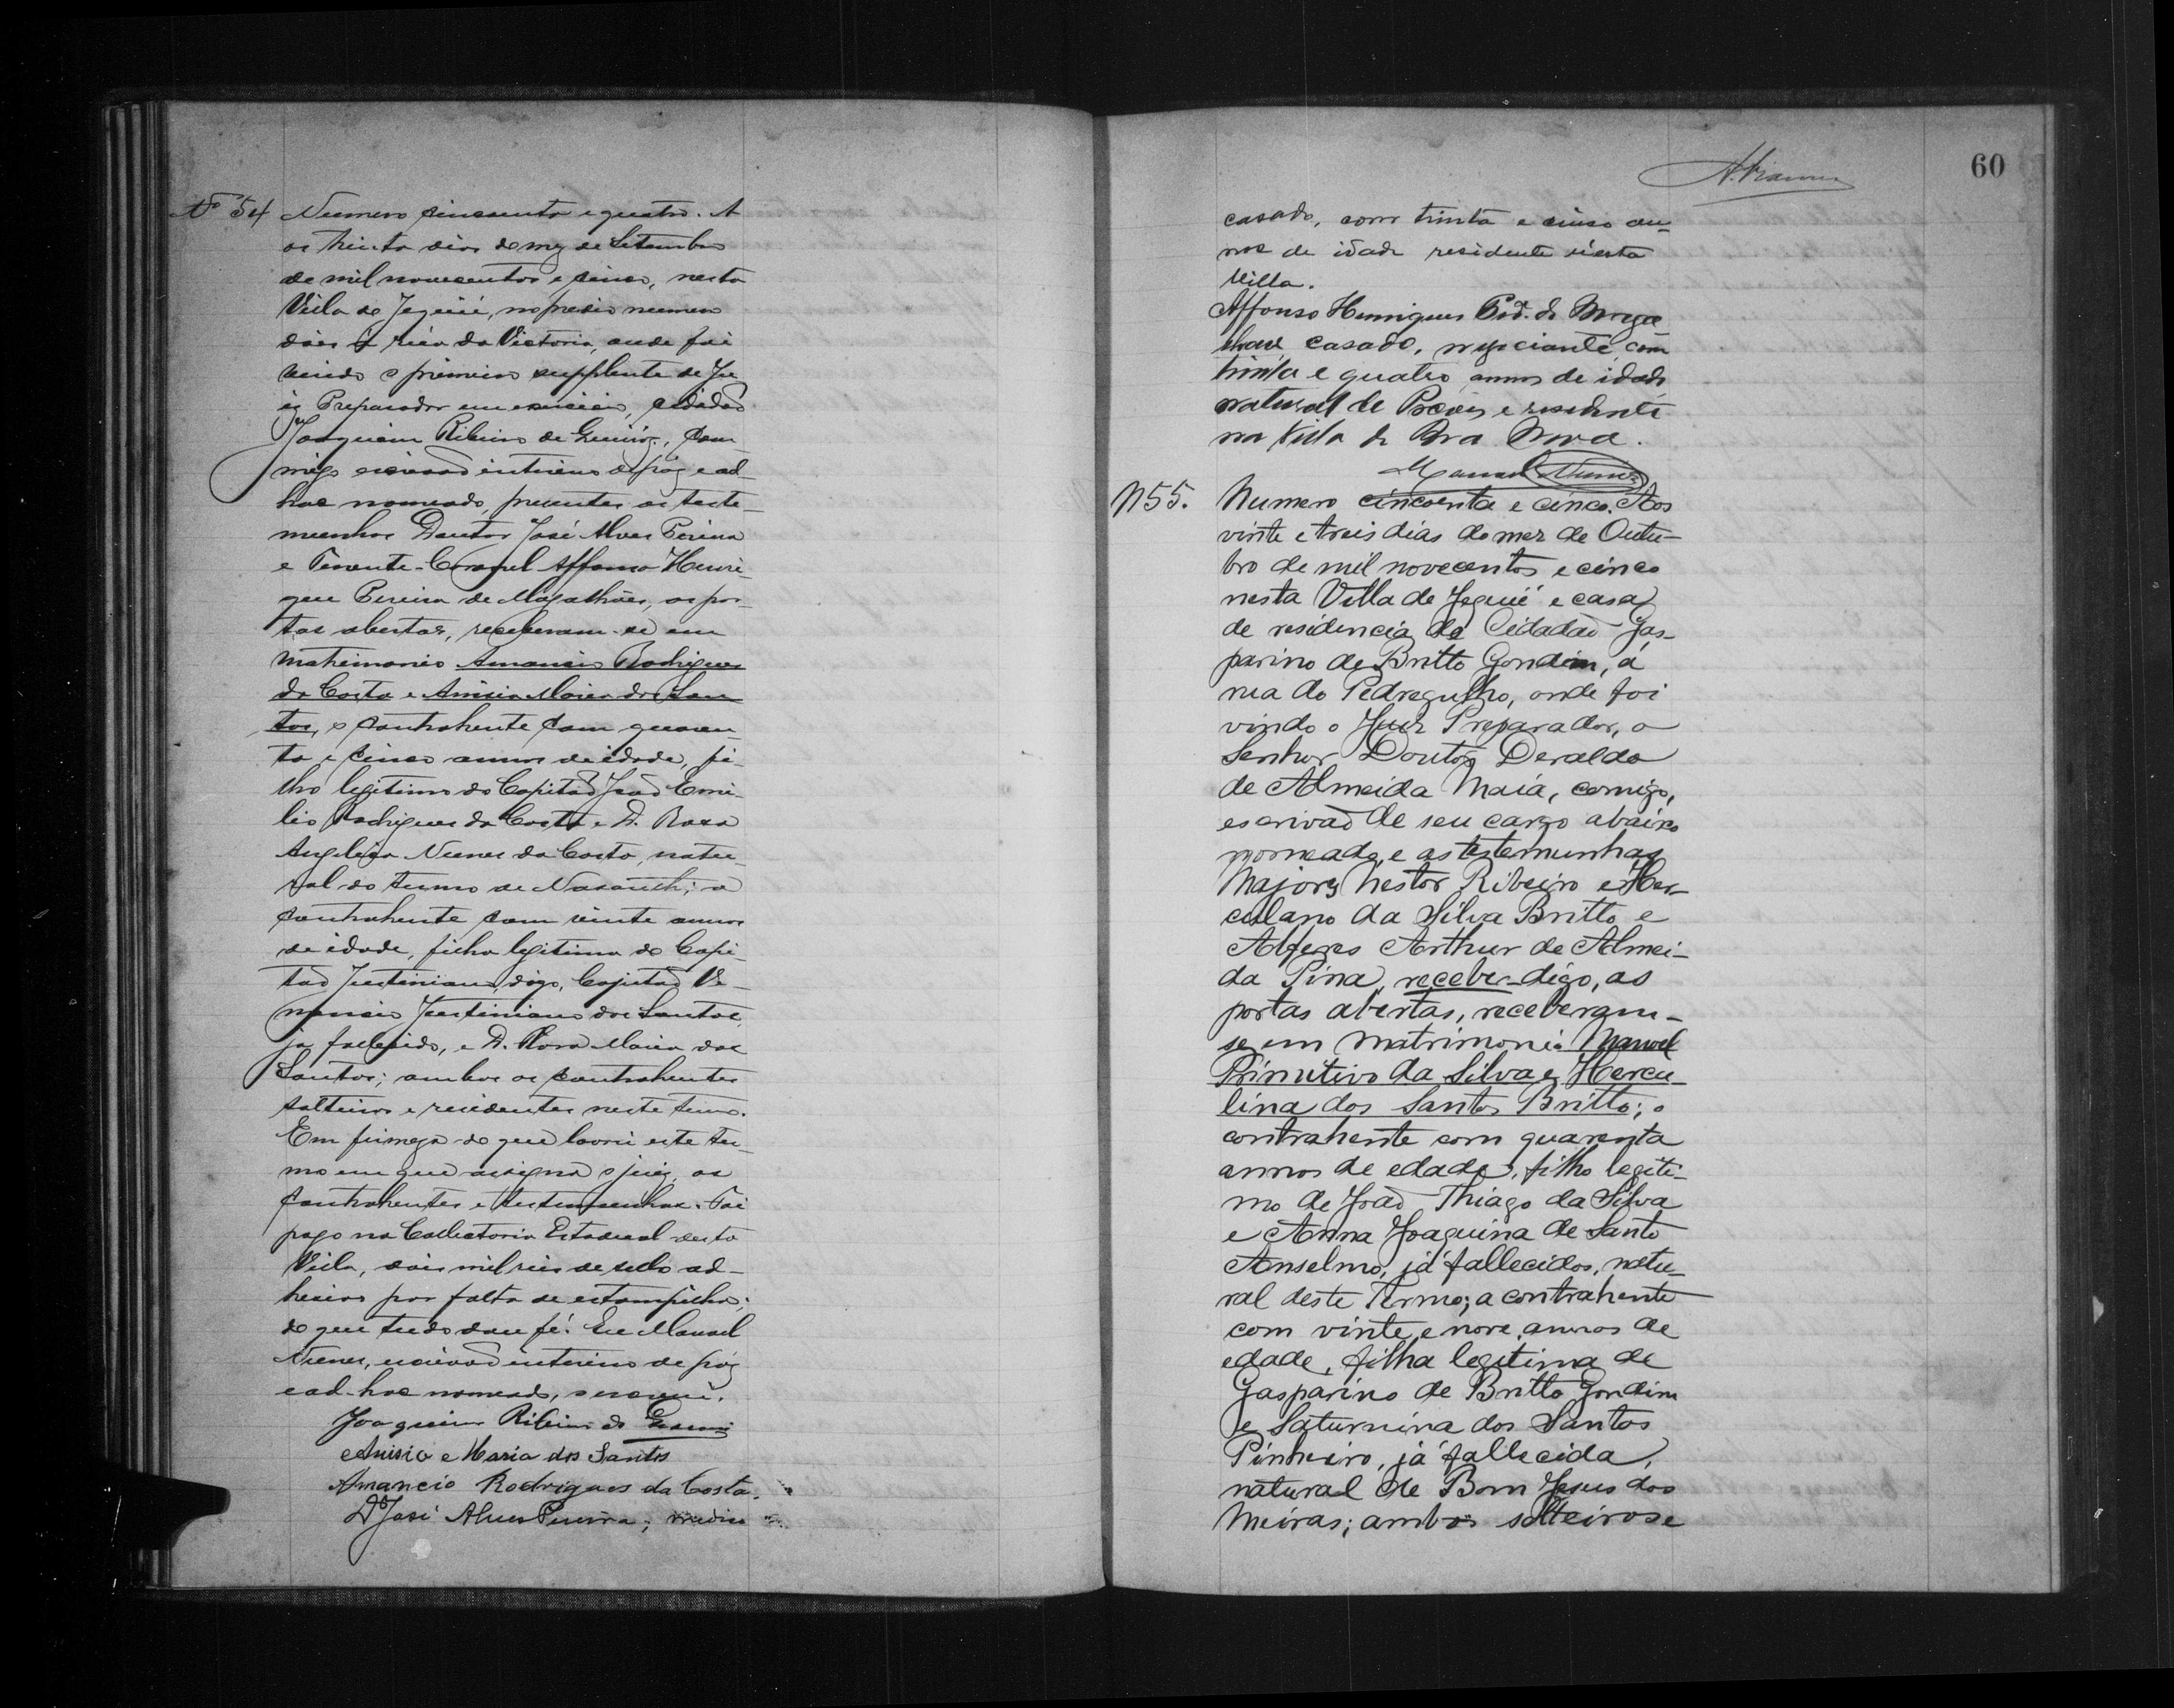 Nº 54 Numero cincoenta e quatro. A
os trinta dias do mez de Setembro
de mil novecentos e cinco, nesta
Villa de Jequié, no predio numero
dois á rúa da Victoria, onde foi
vindo o primeiro supplente de Ju
iz Preparador em exercicio, cidadão
Joaquim Ribeiro de, com
migo escrivão interino de páz e ad-
hoc nomeado, presentes as teste-
munhas Doutor José Alves Pereira
e Tenente-Coronel Affonso Henri-
que Pereira de Magalhães, as por-
tas abertas, receberam-se em
matrimonio Amancio Rodrigues
da Costa e Anisia Maria dos San
tos, o contrahente com quaren-
ta e cinco annos de idade, fi-
lho legitimo do Capitão João Emi-
lio Rodrigues da Costa e D. Rosa
Angelica Nunes da Costa, natu-
ral do termo de Nazareth; a
contrahente com vinte annos
de idade, filha legitima do Capi-
tão Justiniano, digo, Capitão Ve-
nancio Justiniano dos Santos,
já fallecido, e D. Maria dos
Santos; ambos os contrahentes
solteiros e residentes neste termo.
Em firmeza do que lavrei este ter-
mo em que assigna o juiz, os
contrahentes e testemunhas. Foi
pago na Collectoria Estadual desta
Villa, dois mil reis de sello ad-
hesivo por falta de estampilha;
do que tudo dou fé. Eu Manoel
Nunes, escrivão interino de páz
e ad-hoc nomeado, o escrevi.
Joaquim Ribeiro de
Anisia e Maria dos Santos
Amancio Rodrigues da Costa.
Dr José Alves Pereira, medico
60
casado, com trinta e cinco an-
nos de idade residente n'esta
Villa.
Affonso Henriques de Maga
lhaes, casado, negociante, com
trinta e quatro annos de idade
natural de e residente
na Villa de Boa Nova.
Manoel Nunes
N 55. Numero cincoenta e cinco. Aos
vinte e treis dias do mez de Outu-
bro de mil novecentos e cinco
nesta Villa de Jequié e casa
de residencia do Cidadão Gas-
parino de Britto Gondim, á
rua do Pedregulho, onde foi
vindo o Juiz Preparador, o
Senhor Doutor Deraldo
de Almeida Maia, comigo,
escrivão de seu cargo abaixo
nomeado, e as testemunhas
Majores Nestor Ribeiro e Her-
culano da Silva Britto e
Alferes Arthur de Almei-
da Pina, recebe-digo, as
portas abertas, receberam-
se em matrimonio Manoel
Primitivo da Silva e Hercu-
lina dos Santos Britto; o
contrahente com quarenta
annos de edade, filho legiti-
mo de João Thiago da Silva
e Anna Joaquina de Santo
Anselmo, já fallecidos, natu-
ral deste Termo; a contrahente
com vinte e nove annos de
edade, filha legitima de
Gasparino de Britto Gondim
e Saturnina dos Santos
Pinheiro, já fallecida,
natural de Bom Jesus dos
Meiras; ambos solteiros e